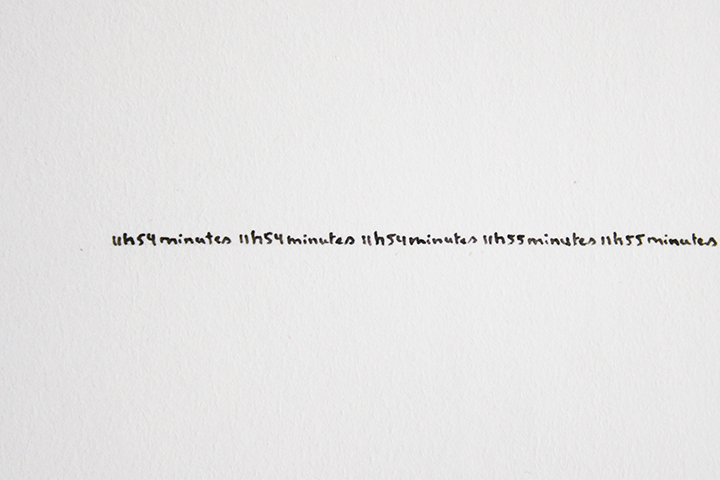 11h54minutes 11h54minutes 11h54minutes 11h55minutes 11h55minutes